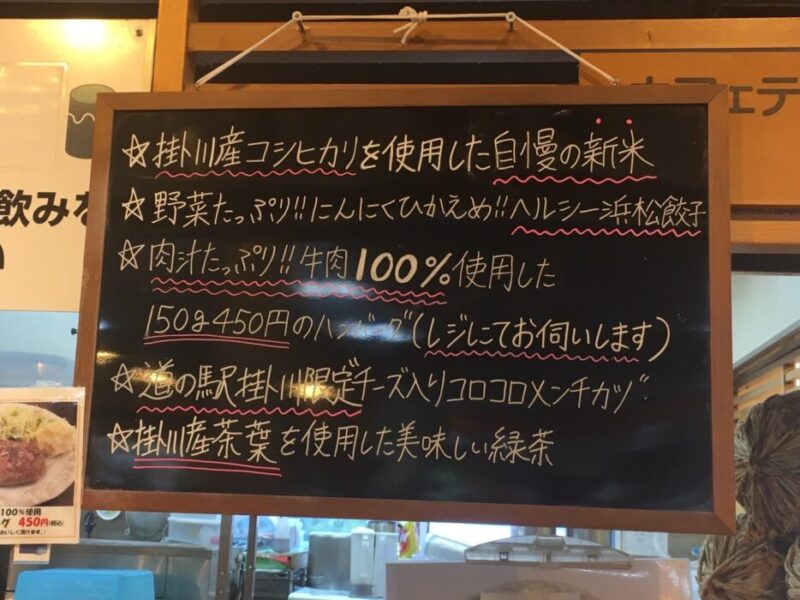 ☆掛川産コシヒカリを使用した自慢の新米
☆野菜たっぷり!!にんにくひかえめ!!ヘルシー浜松餃子
☆肉汁たっぷり!!牛肉100%使用した
150g450円のハンバーグ(レジにてお伺いします)
☆道の駅掛川限定チーズ入りコロコロメンチカツ
☆掛川産茶葉を使用した美味しい緑茶
飲みな
い
カフェテ
100%使用
グ 450円(税込)